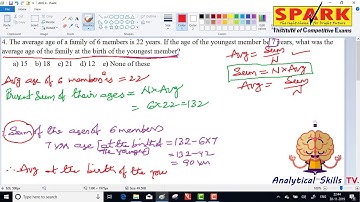 SPARK
Institute of Competitive Exams
4. The average age of a family of 6 members is 22 years. If the age of the youngest member be 7 years, what was the
average age of the family at the birth of the youngest member?
a) 15 b) 18 c) 21 d) 12 e) None of these
Avg = Sum/N
Sum = N×Avg
Avg = Sum/N
Avg age of 6 members is = 22
Present Sum of their ages = N×Avg
= 6×22 = 132
Sum of the ages of 6 members
7 yrs ago [at the birth of the youngest] = 132-6×7
= 132-42
= 90
∴ Avg at the birth of the you
Analytical Skills TV